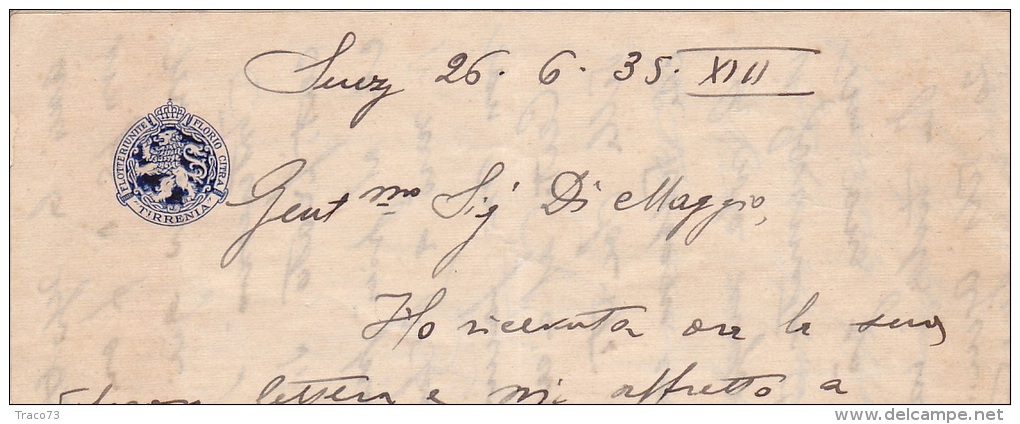 Suez 26. 6. 35. XIII
FLOTTE RIUNITE FLORIO CITRA
TIRRENIA
Gent.mo Sig Di Maggio,
Ho ricevuta ora la sua
lettera e mi affretto a
Traco73
delcampe.net